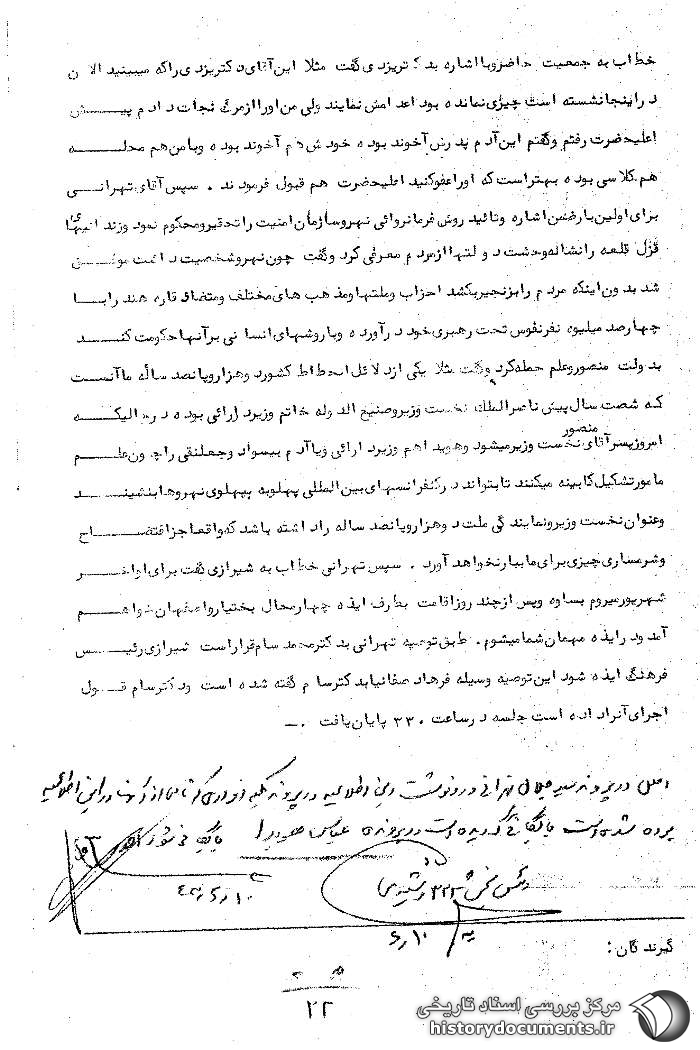 خطاب به جمعیت حاضر و با اشاره به دکتر یزدی گفت مثلا این آقای دکتر یزدی را که میبینید الان
در اینجا نشسته است چیزی نمانده بود اعدامش نمایند ولی من او را از مرگ نجات دادم پیش
اعلیحضرت رفتم و گفتم این آدم پدرش آخوند بوده خودش هم آخوند بوده و با من هم محله
هم کلاسی بوده بهتر است که او را عفو کنید اعلیحضرت هم قبول فرمودند . سپس آقای تهرانی
برای اولین بار ضمن اشاره و تائید روش فرمانروائی نهرو سازمان امنیت را تحقیر و محکوم نمود و زندانهای
قزل قلعه را نشانه وحشت دولتها از مردم معرفی کرد و گفت چون نهرو شخصیت داشت موفق
شد بدون اینکه مردم را بزنجیر بکشد احزاب و ملتها و مذهب های مختلف و متضاد قاره هند را با
چهارصد میلیون نفر نفوس تحت رهبری خود درآورده و با روشهای انسانی بر آنها حکومت کند
بدولت منصور و علم حمله کرد و گفت مثلا یکی از دلائل انحطاط کشور دو هزار و پانصد ساله ما آنست
که شصت سال پیش ناصرالملک نخست وزیر و صنیع الدوله خاتم وزیر دارائی بوده در حالیکه
امروز پسر آقای منصور نخست وزیر میشود و هویدا هم وزیر دارائی و یا آدم بیسواد و جعلنقی را چون علم
مامور تشکیل کابینه میکنند تا بتواند در کنفرانسهای بین المللی پهلو به پهلوی نهروها بنشیند
و عنوان نخست وزیر و نمایندگی ملت دو هزار و پانصد ساله را داشته باشد که واقعا جز افتضاح
و شرمساری چیزی برای ما ببار نخواهد آورد . سپس تهرانی خطاب به شیرازی گفت برای اواخر
شهریور میروم بساوه و پس از چند روز اقامت بطرف ایذه چهارمحال بختیار و اصفهان خواهم
آمد و در ایذه مهمان شما میشوم . طبق توصیه تهرانی به دکتر محمد سام قرار است شیرازی رئیس
فرهنگ ایذه شود این توصیه وسیله فرهاد صفانیا به دکتر سام گفته شده است و دکتر سام قول
اجرای آنرا داده است جلسه در ساعت ۳۳۰ پایان یافت . —
اصل در پرونده سید جلال تهرانی و رونوشت این اطلاعیه در پرونده کلیه افرادی که نامی از آنها در این اطلاعیه
برده شده است بایگانی گردیده است در پرونده عباس هویدا بایگانی شود
رئیس بخش ۳۲۳ رشیدی
۱۰/۶
گیرندگان :
۲۲
مرکز بررسی اسناد تاریخی
historydocuments.ir